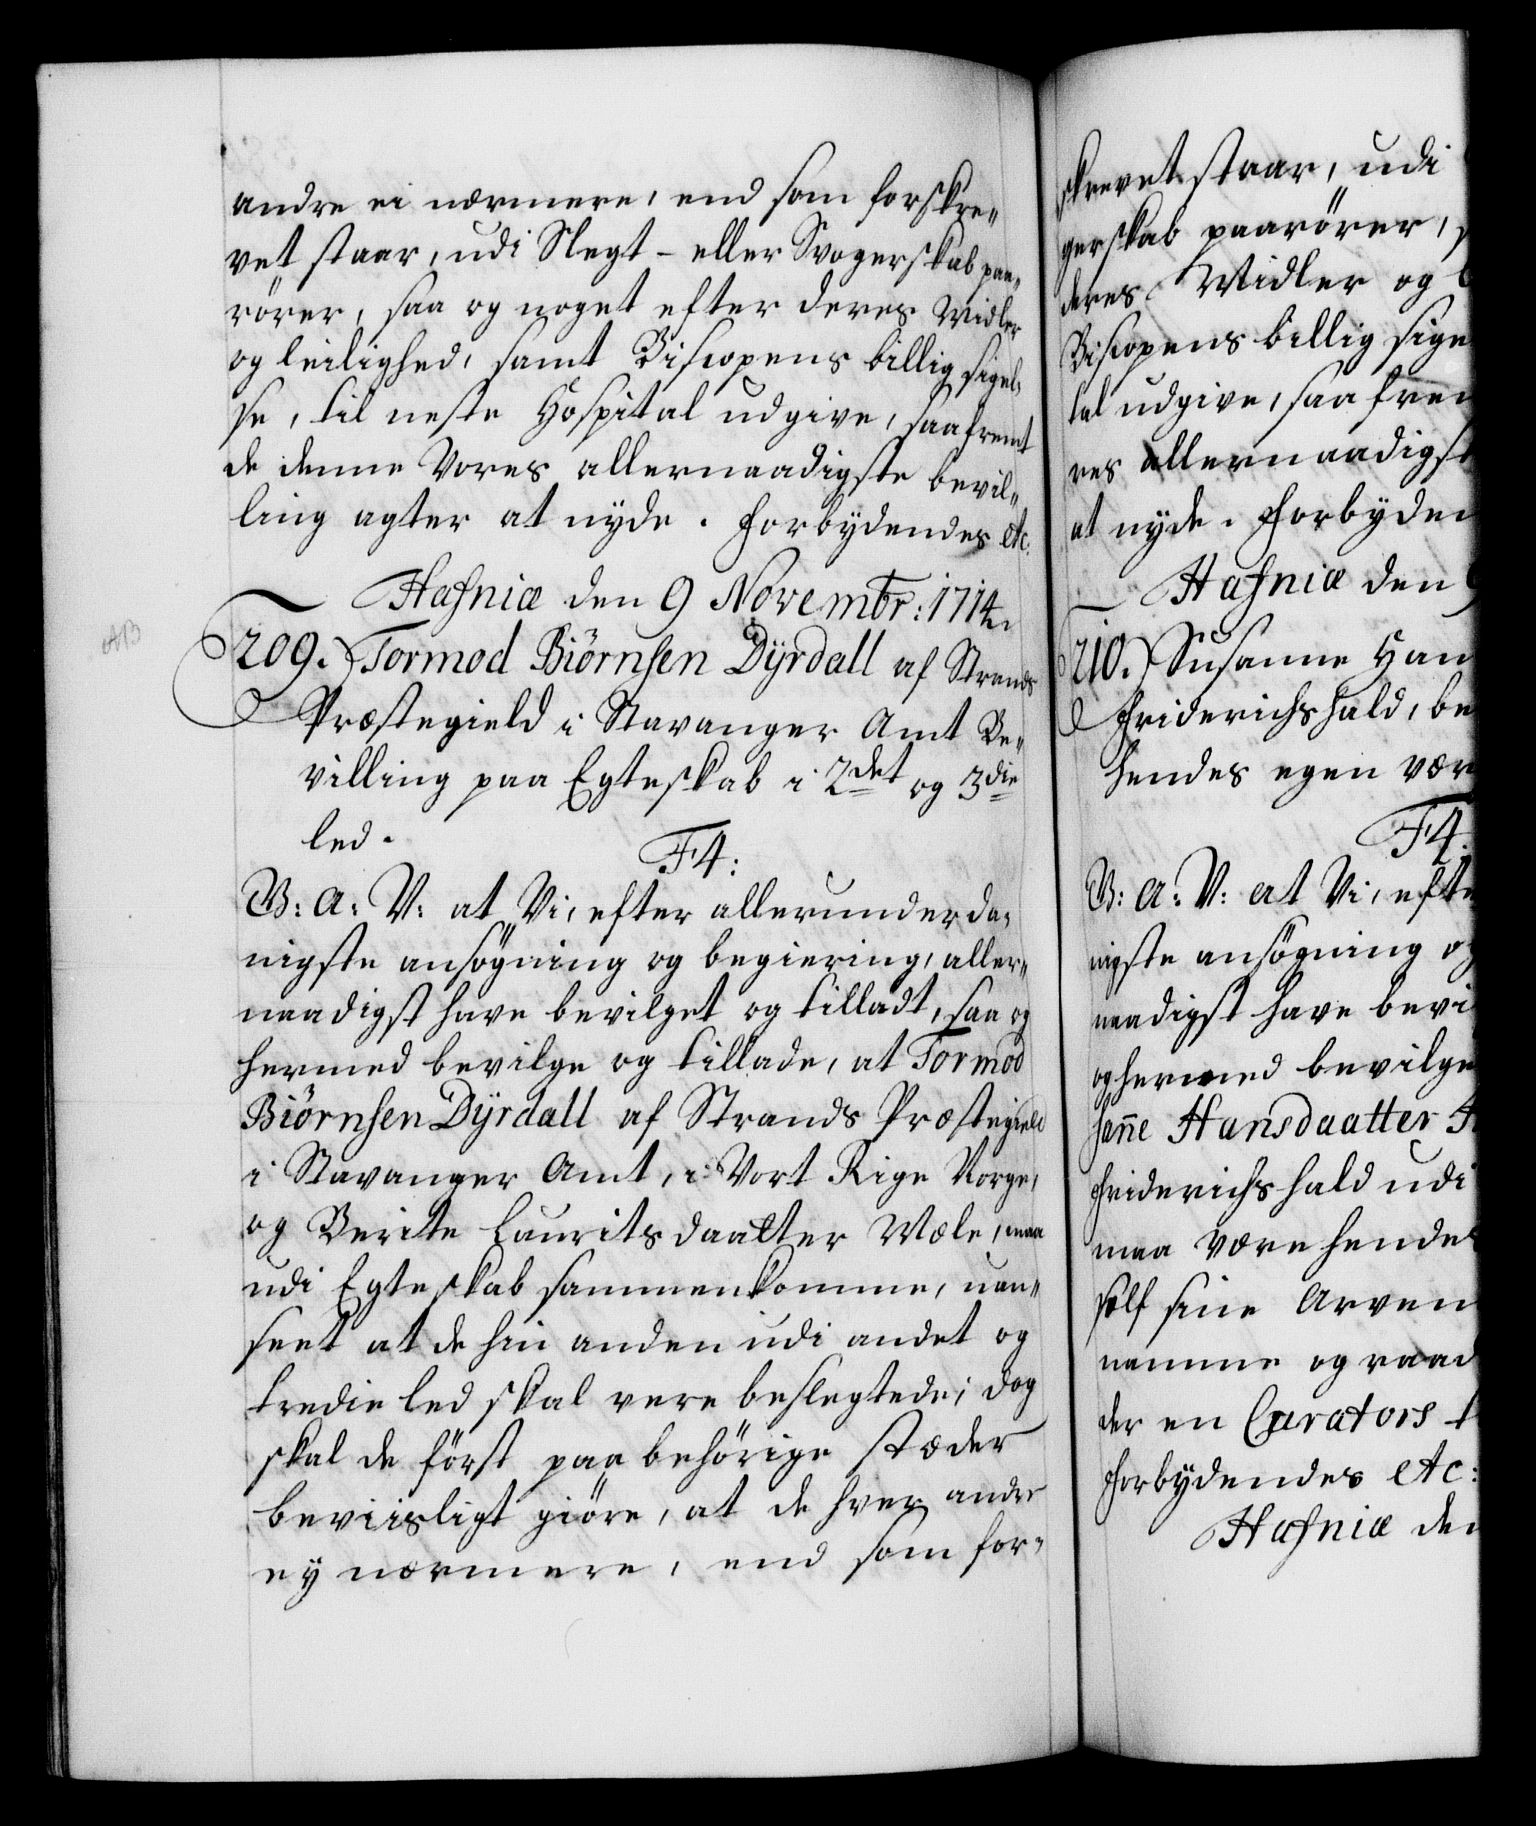 andre ei nærmere, end som forskre„
vet staar, udi Slegt- eller Svogerskab paa„
rörer, saa og noget efter deres Midler
og leilighed, samt Biscopens billig sigel„
se, til neste Hospital udgive, saafremt
de denne Vores allernaadigste bevil„
ling agter at nyde. Forbydendes etc.
Hafniæ den 9 Novembr: 1714.
AB
209.) Tormod Biörnsen Dÿrdall af Strands
Præstegield i Stavanger Amt Be„
villing paa Egteskab i 2det og 3die
led.
F4:
V: A: V: at Vi, efter allerunderda„
nigste ansögning og begiering, aller„
naadigst have bevilget og tilladt, saa og
hermed bevilge og tillade, at Tormod
Biörnsen Dÿrdall af Strands Præstegield
i Stavanger Amt, i Vort Rige Norge,
og Berite Lauritsdaatter Mæle, maa
udi Egteskab sammenkomme, uan„
seet at de hin anden udi andet og
tredie led skal vere beslegtede; dog
skal de först paa behörige stæder
beviisligt giöre, at de hver andre
ey nærmere, end som for„
skrevet staar, udi
gerskab paarörer, s
deres Midler og l
Biscopens billig sige
tal udgive, saa frem
res allernaadigst
at nyde. Forbyden
Hafniæ den 9
210.) Susanne Han
Friderichshald, be
hendes egen vær
F4.
V: A: V: at Vi, efte
nigste ansögning og
naadigst have bevi
og hermed bevilge
sañe Hansdaatter
Friderichshald udi
maa være hendes
self sine Arven
namme og raad
der en Curators
Forbydendes etc:
Hafniæ den